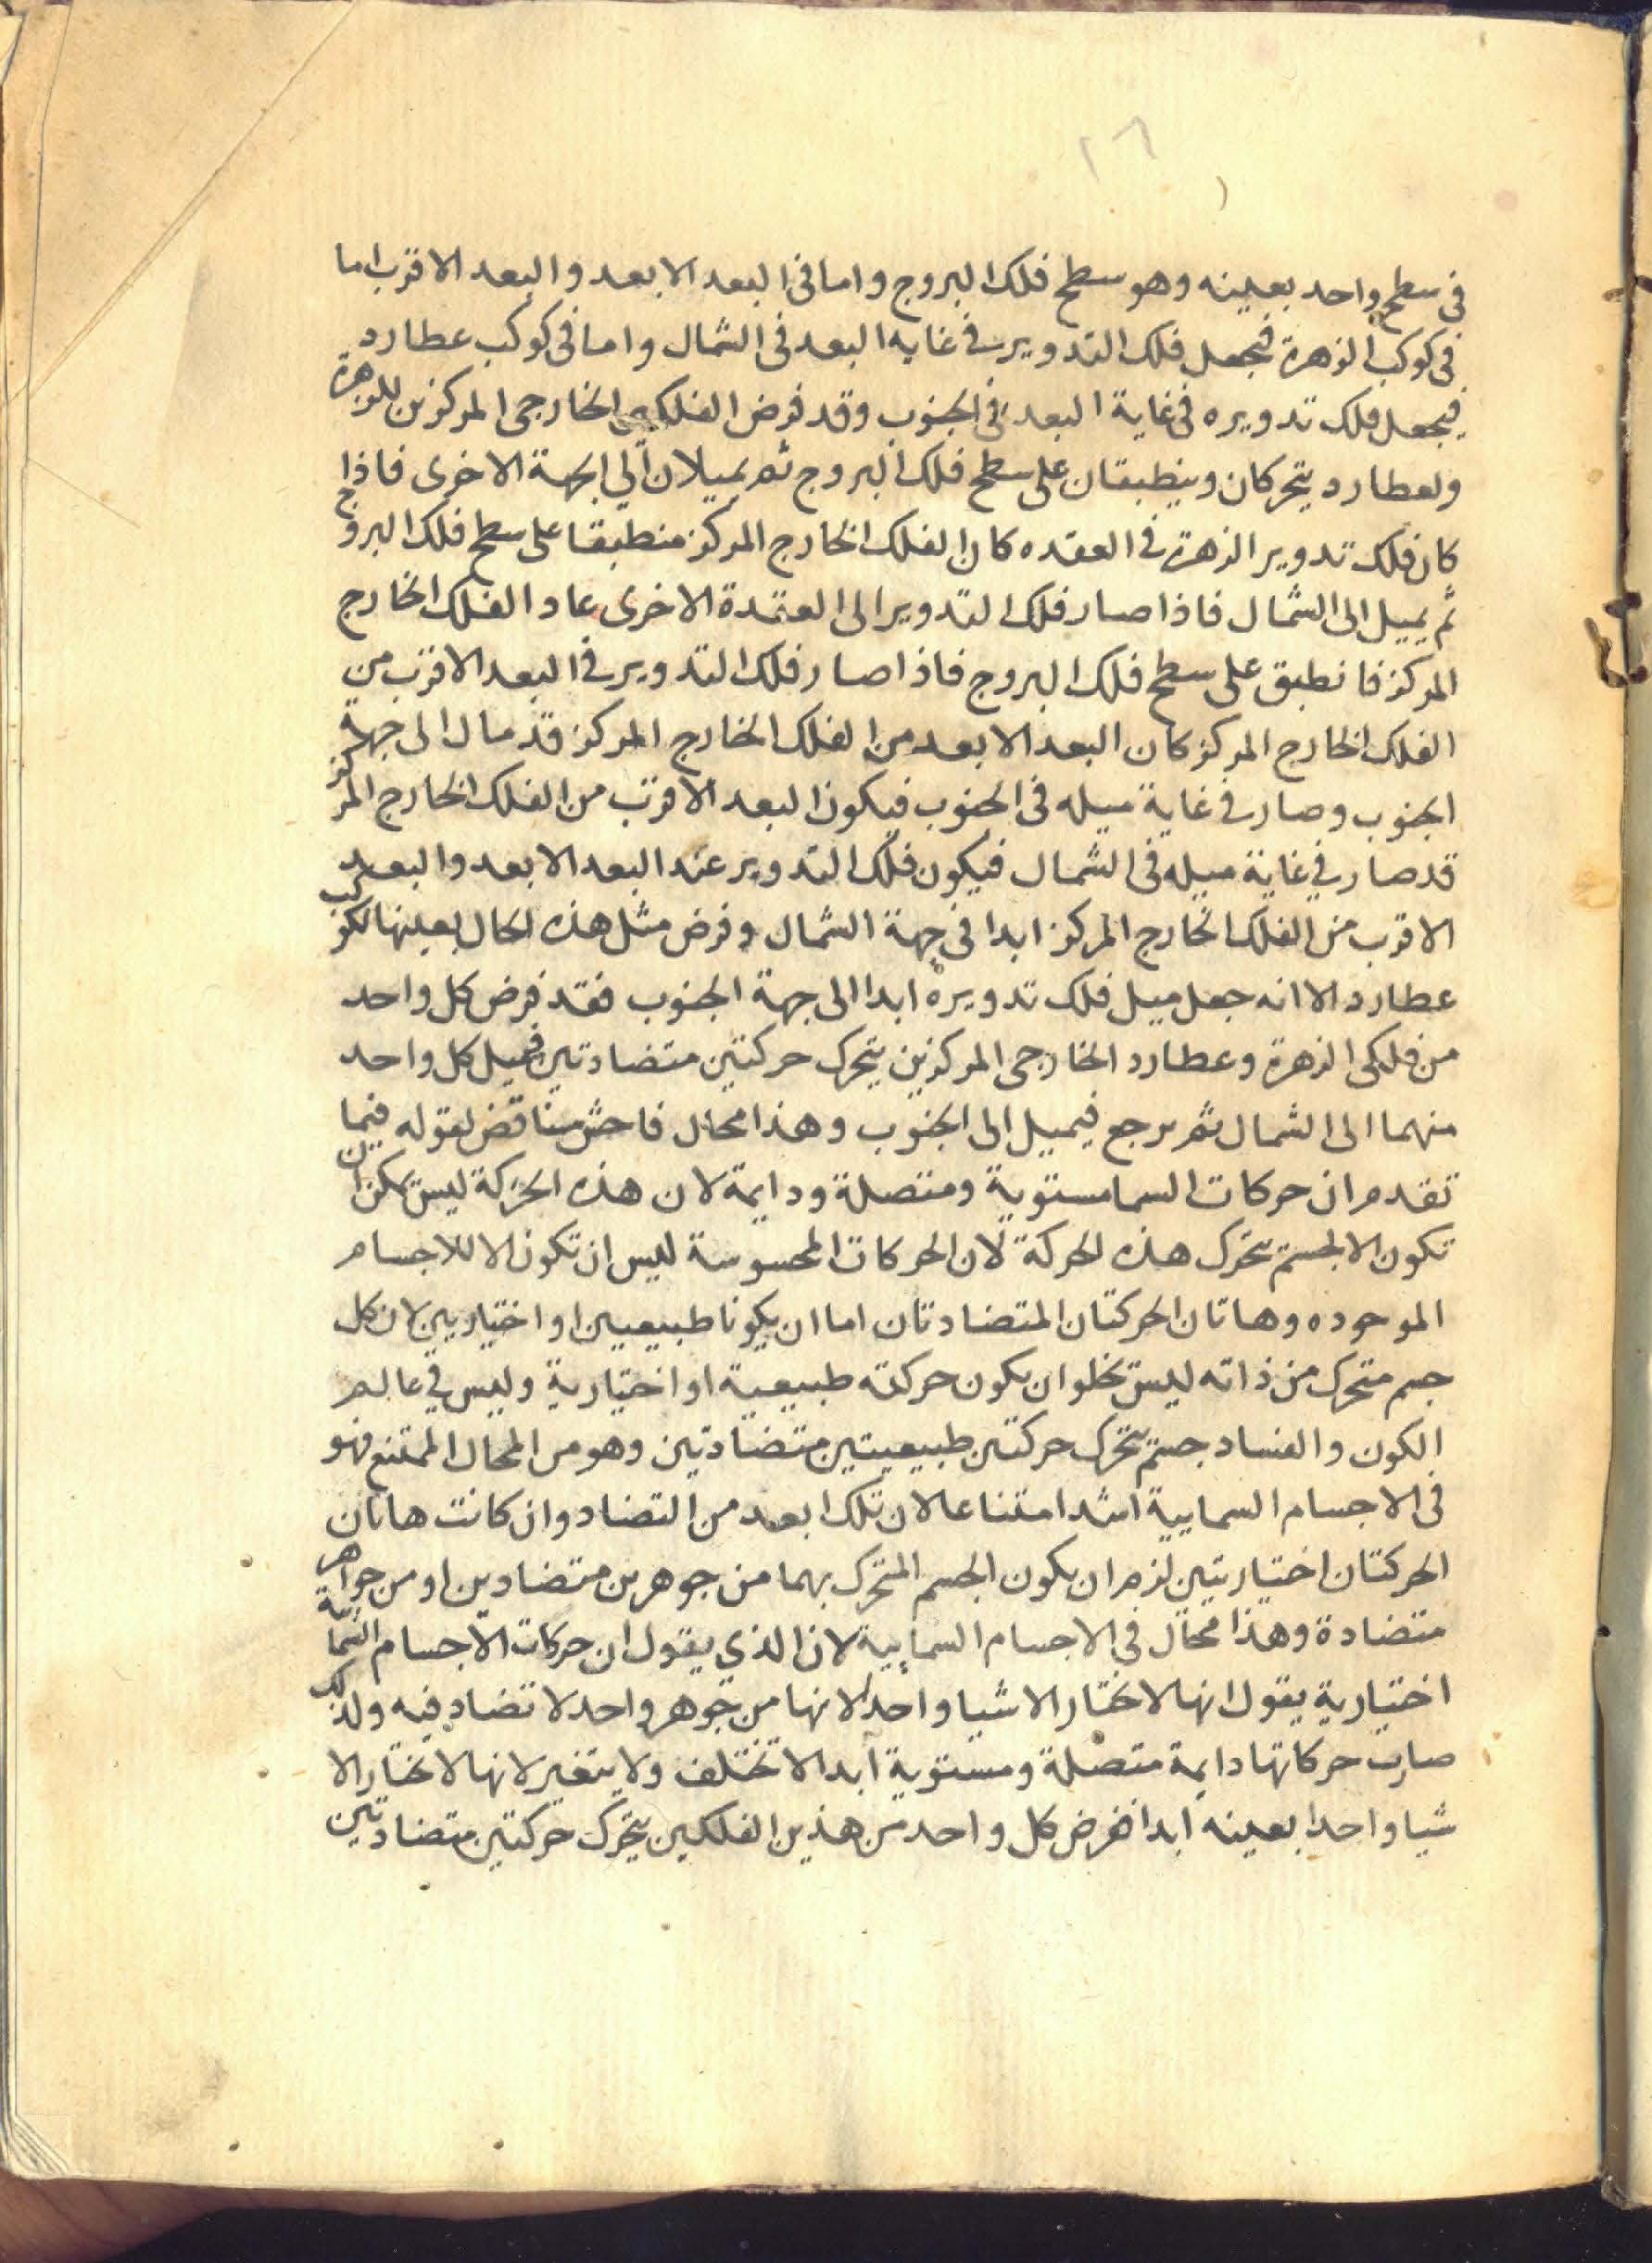 ٢٦
في سطح واحد بعينه وهو سطح فلك البروج واما في البعد الابعد والبعد الاقرب اما
في كوكب الزهرة فيجعل فلك التدوير في غايه البعد في الشمال واما في كوكب عطارد
فيجعل فلك تدويره في غاية البعد في الجنوب وقد فرض الفلكين الخارجي المركزين للزهرة
ولعطارد يتحركان وينطبقان على سطح فلك البروج ثم يميلان الي الجهة الاخرى فاذا
كان فلك تدوير الزهرة في العقده كان الفلك الخارج المركز منطبقا على سطح فلك البروج
ثم يميل الى الشمال فاذا صار فلك التدوير الى العقدة الاخرى عاد الفلك الخارج
المركز فانطبق على سطح فلك البروج فاذا صار فلك التدوير في البعد الاقرب من
الفلك الخارج المركز كان البعد الابعد من الفلك الخارج المركز قد مال الى جهة
الجنوب وصار في غاية ميله في الجنوب فيكون البعد الاقرب من الفلك الخارج المركز
قد صار في غاية ميله في الشمال فيكون فلك التدوير عند البعد الابعد والبعد
الاقرب من الفلك الخارج المركز ابدا في جهة الشمال وفرض مثل هذه الحال بعينها لكوكب
عطارد الا انه جعل ميل فلك تدويره ابدا الى جهة الجنوب فقد فرض كل واحد
من فلكى الزهرة وعطارد الخارجى المركزين يتحرك حركتين متضادتين فيميل كل واحد
منهما الى الشمال ثم يرجع فيميل الى الجنوب وهذا محال فاحش مناقض لقوله فيما
تقدم ان حركات السما مستوية ومتصلة ودايمة لان هذه الحركة ليس يمكن ان
تكون الا لجسم يتحرك هذه الحركة لان الحركات المحسوسة ليس ان تكون الا للاجسام
الموجوده وهاتان الحركتان المتضادتان اما ان يكونا طبيعيين او اختياريين لان كل
جسم متحرك من ذاته ليس تخلو ان يكون حركته طبيعية او اختيارية وليس في عالم
الكون والفساد جسم يتحرك حركتين طبيعيتين متضادتين وهو من المحال الممتنع فهو
في الاجسام السمايية اشد امتناعا لان تلك ابعد من التضاد وان كانت هاتان
الحركتان اختياريتين لزم ان يكون الجسم المتحرك بهما من جوهرين متضادين او من جواهر
متضادة وهذا محال في الاجسام السمايية لان الذي يقول ان حركات الاجسام السمايية
اختيارية يقول انها لا تختار الا شيا واحدا لانها من جوهر واحد لا تضاد فيه ولذلك
صارت حركاتها دايمة متصلة ومستوية ابدا لا تختلف ولا يتغير لانها لا تختار الا
شيا واحدا بعينه ابدا ففرض كل واحد من هذين الفلكين يتحرك حركتين متضادتين